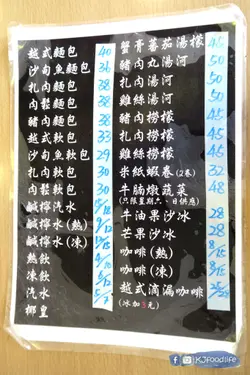 越式麵包 40
沙甸魚麵包 36
扎肉麵包 38
肉鬆麵包 38
豬肉麵包 38
越式軟包 33
沙甸魚軟包 29
扎肉軟包 30
肉鬆軟包 30
鹹檸汽水 15/18
鹹檸水(熱)
鹹檸水(凍)
熱飲
凍飲
汽水
椰皇
蟹膏蕃茄湯檬 45
豬肉丸湯河 50
扎肉湯河 50
雞絲湯河 50
豬肉撈檬 45
扎肉撈檬 45
雞絲撈檬 45
米紙蝦卷(2卷) 32
牛腩燉蔬菜 48
(只限星期六、日供應)
牛油果沙冰 28
芒果沙冰 28
咖啡(熱)
咖啡(凍)
越式滴漏咖啡
(冰加3元)
KJfoodlife